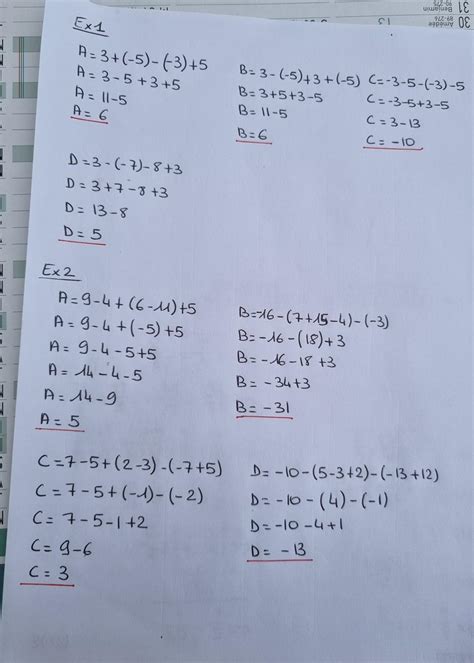 31 Benjamin
90-275
30 Amédée
89-276
13
Ex1
A=3+(-5)-(-3)+5
A=3-5+3+5
A=11-5
A=6
B=3-(-5)+3+(-5)
B=3+5+3-5
B=11-5
B=6
C=-3-5-(-3)-5
C=-3-5+3-5
C=3-13
C=-10
D=3-(-7)-8+3
D=3+7-8+3
D=13-8
D=5
Ex2
A=9-4+(6-11)+5
A=9-4+(-5)+5
A=9-4-5+5
A=14-4-5
A=14-9
A=5
B=-16-(7+15-4)-(-3)
B=-16-(18)+3
B=-16-18+3
B=-34+3
B=-31
C=7-5+(2-3)-(-7+5)
C=7-5+(-1)-(-2)
C=7-5-1+2
C=9-6
C=3
D=-10-(5-3+2)-(-13+12)
D=-10-(4)-(-1)
D=-10-4+1
D=-13